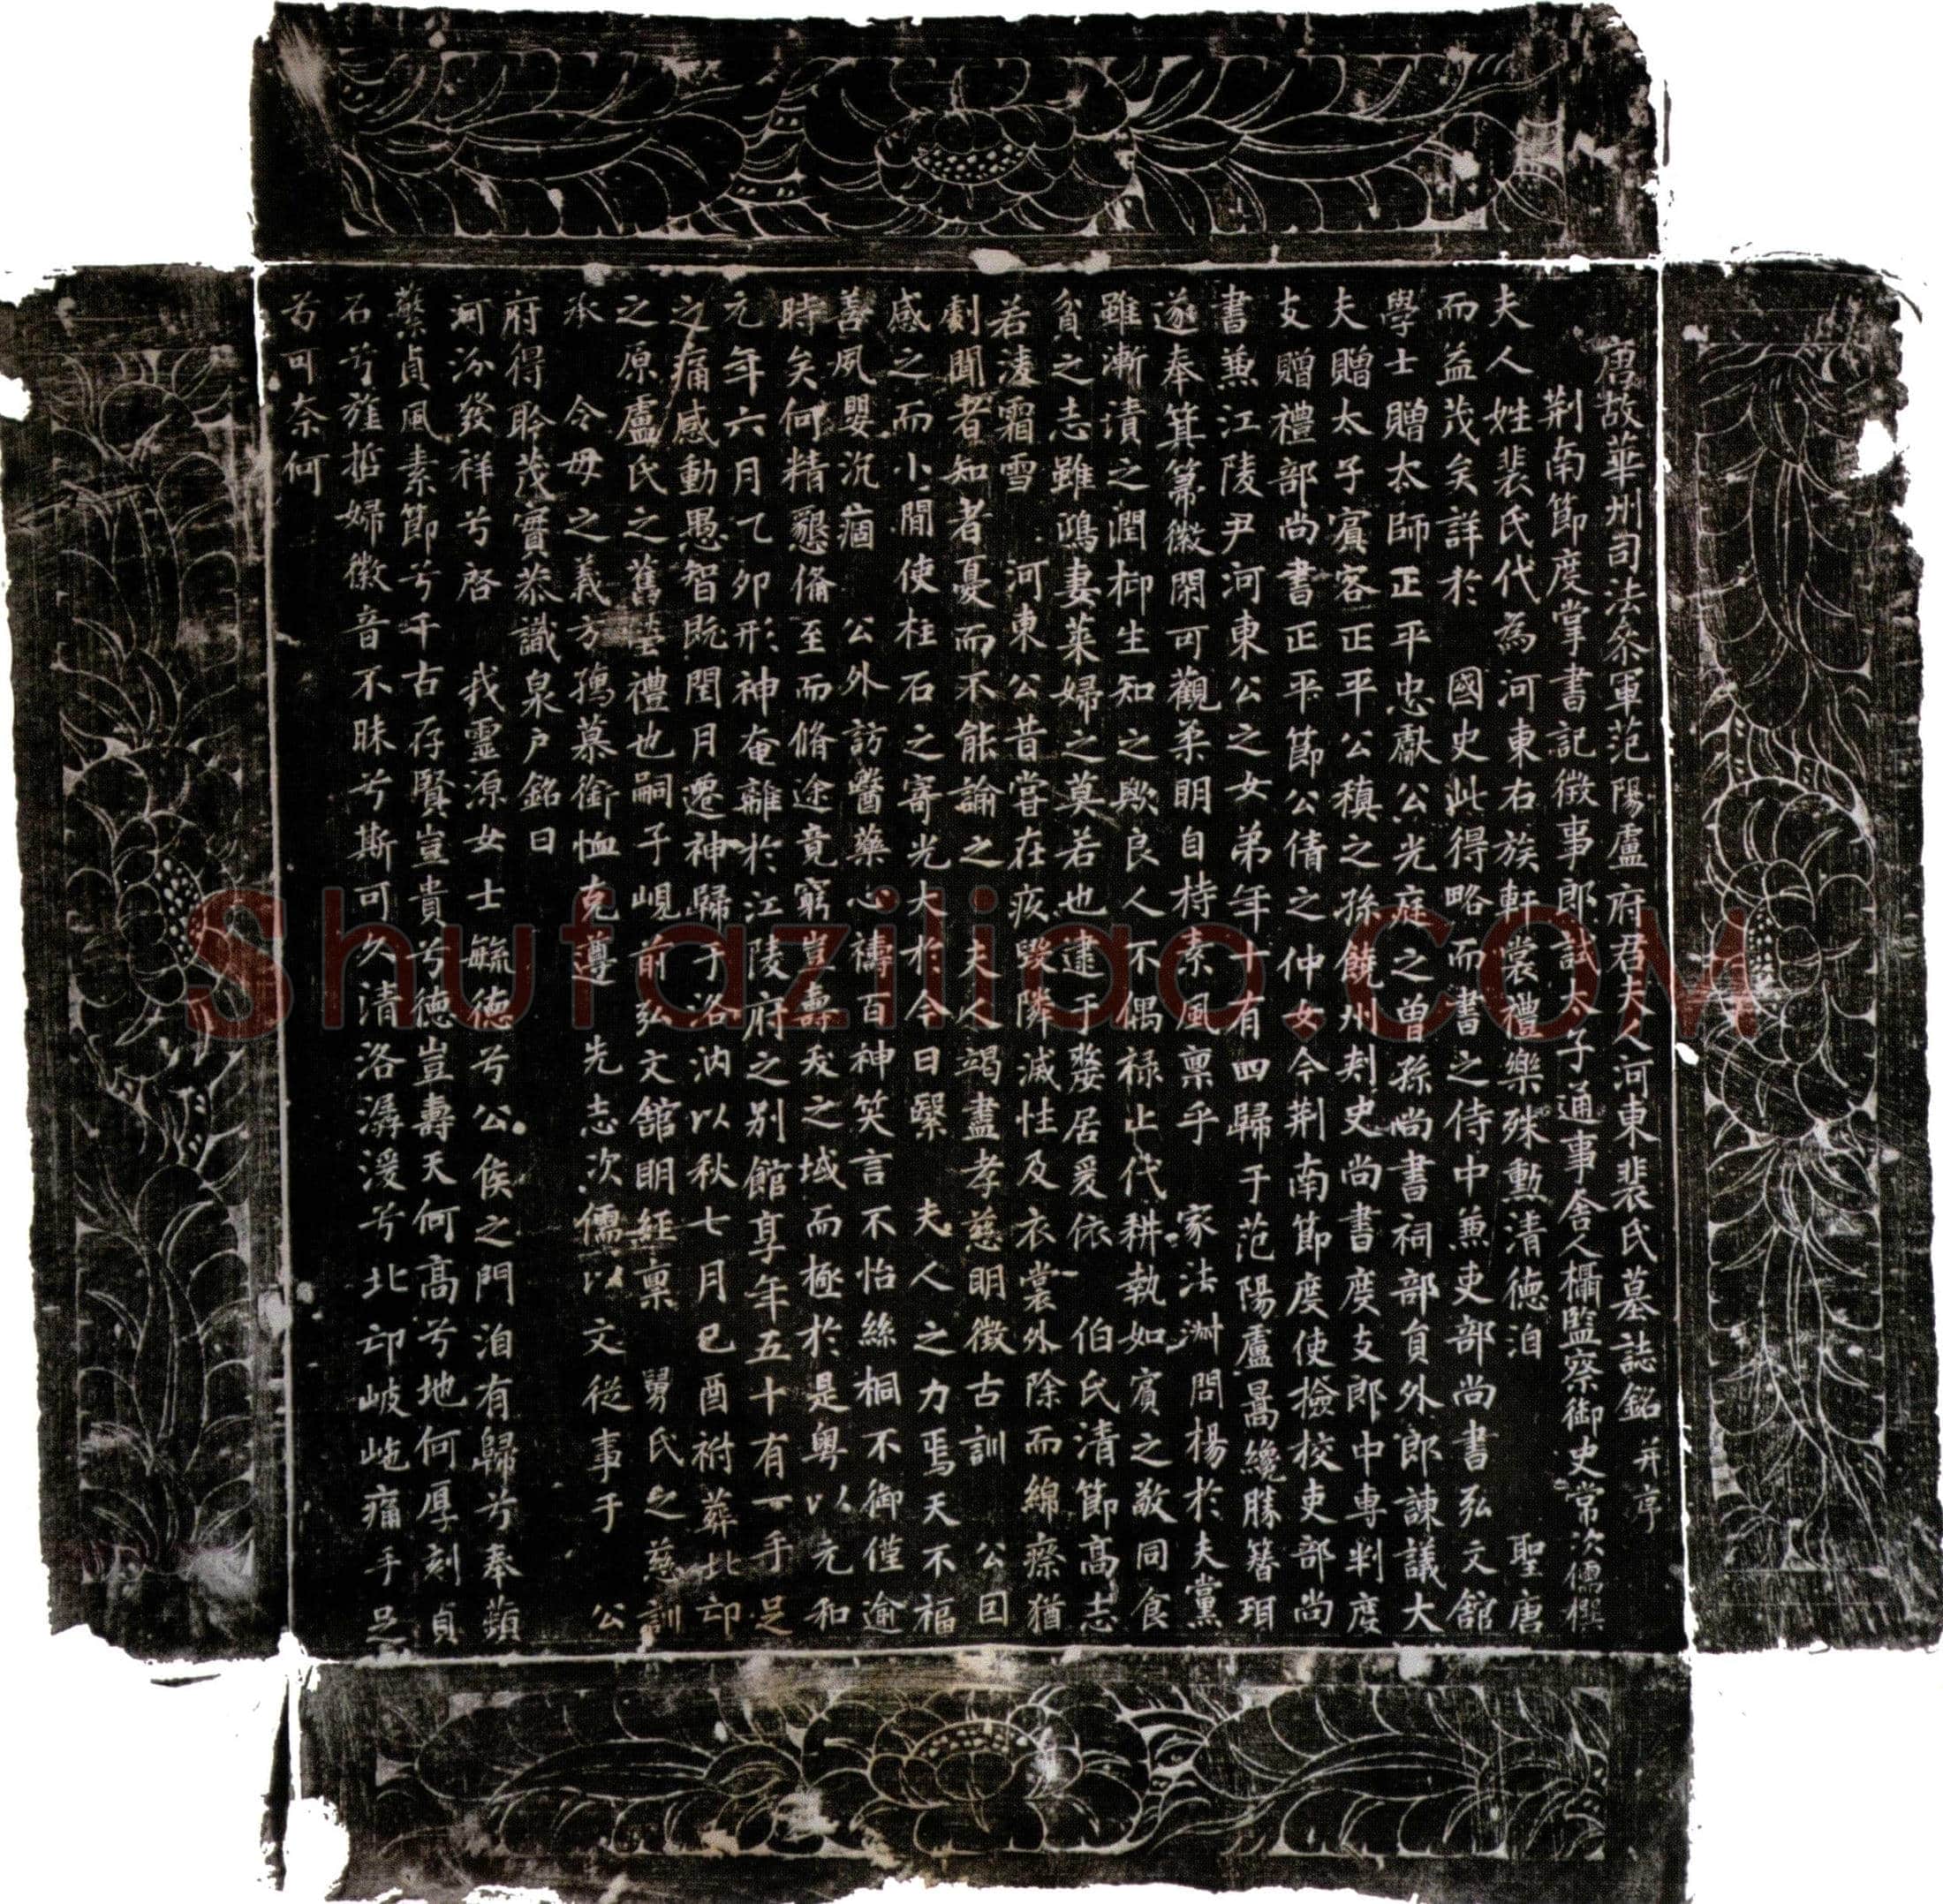 唐故華州司法叅軍范陽盧府君夫人河東裴氏墓誌銘 并序
荆南節度掌書記徵事郎試太子通事舍人攝監察御史常次儒撰
夫人姓裴氏代為河東右族軒裳禮樂殊勳清德洎 聖唐
而益茂矣詳於 國史此得略而書之侍中兼吏部尚書弘文館
學士贈太師正平忠獻公光庭之曾孫尚書祠部員外郎諫議大
夫贈太子賓客正平公稹之孫饒州刺史尚書度支郎中專判度
支贈禮部尚書正平節公倩之仲女今荆南節度使檢校吏部尚
書兼江陵尹河東公之女弟年十有四歸于范陽盧暠纔勝簪珥
遂奉箕箒徽閑可觀柔明自持素風稟乎 家法淋問楊於夫黨
雖漸漬之潤枊生知之歟良人不偶禄止代耕執如賓之敬同食
貧之志雖鴻妻萊婦之莫若也逮于嫠居爰依 伯氏清節高志
若淩霜雪 河東公昔甞在疚毀隣滅性及衣裳外除而綿瘵猶
劇聞者知者憂而不能諭之 夫人竭盡孝慈明徵古訓 公因
感之而小閒使柱石之寄光大於今日繄 夫人之力焉天不福
善夙嬰沉痼 公外訪醫藥心禱百神笑言不怡絲桐不御僅逾
時矣何精懇俻至而脩途竟窮豈壽夭之域而極於是粵以元和
元年六月乙卯形神奄離於江陵府之別館享年五十有一手足
之痛感動愚智既閏月遷神歸于洛汭以秋七月己酉祔葬北邙
之原盧氏之舊塋禮也嗣子峴前弘文館明經稟 舅氏之慈訓
承 令母之義方孺慕銜恤克遵 先志次儒以文從事于 公
府得聆茂實恭識泉户銘曰
河汾發祥兮啓 我靈源女士毓德兮公侯之門洎有歸兮奉蘋
蘩貞風素節兮千古存賢豈貴兮德豈壽天何高兮地何厚刻貞
石兮旌哲婦徽音不昧兮斯可久清洛潺湲兮北邙岐嶷痛手足
兮可奈何
Shufaziliao.com